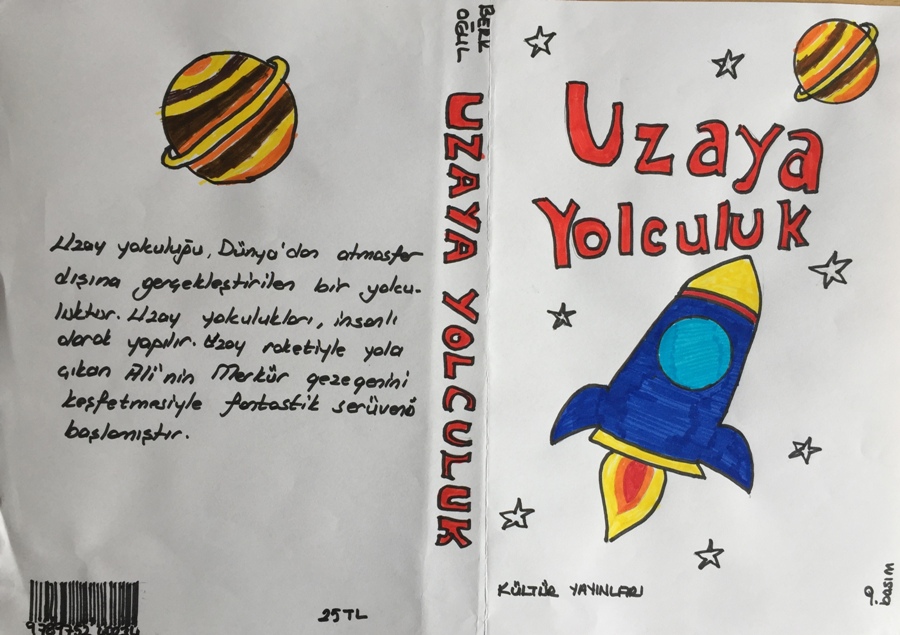 Uzay yolculuğu, Dünya'dan atmosfer
dışına gerçekleştirilen bir yolcu-
luktur. Uzay yolculukları, insanlı
olarak yapılır. Uzay roketiyle yola
çıkan Ali'nin Merkür gezegenini
keşfetmesiyle fantastik serüveni
başlamıştır.
25TL
BERK
OĞUL
UZAYA YOLCULUK
Uzaya
Yolculuk
KÜLTÜR YAYINLARI
basım